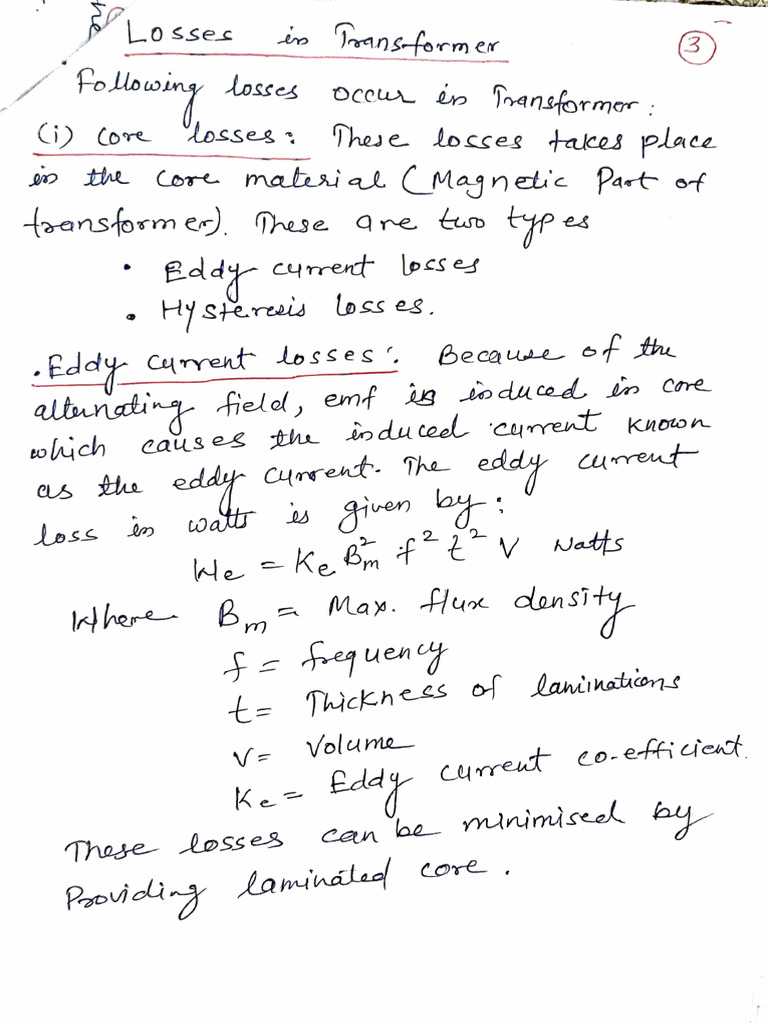 Losses in Transformer
3
Following losses occur in Transformer:
(i) Core losses: These losses takes place
in the core material (Magnetic Part of
transformer). These are two types
• Eddy current losses
• Hysteresis losses.
. Eddy current losses: Because of the
alternating field, emf is induced in core
which causes the induced current known
as the eddy current. The eddy current
loss in watts is given by:
We = Ke Bm² f² t² V Watts
Where Bm = Max. flux density
f = frequency
t = Thickness of laminations
V = Volume
Ke = Eddy current co-efficient.
These losses can be minimised by
Providing laminated core.